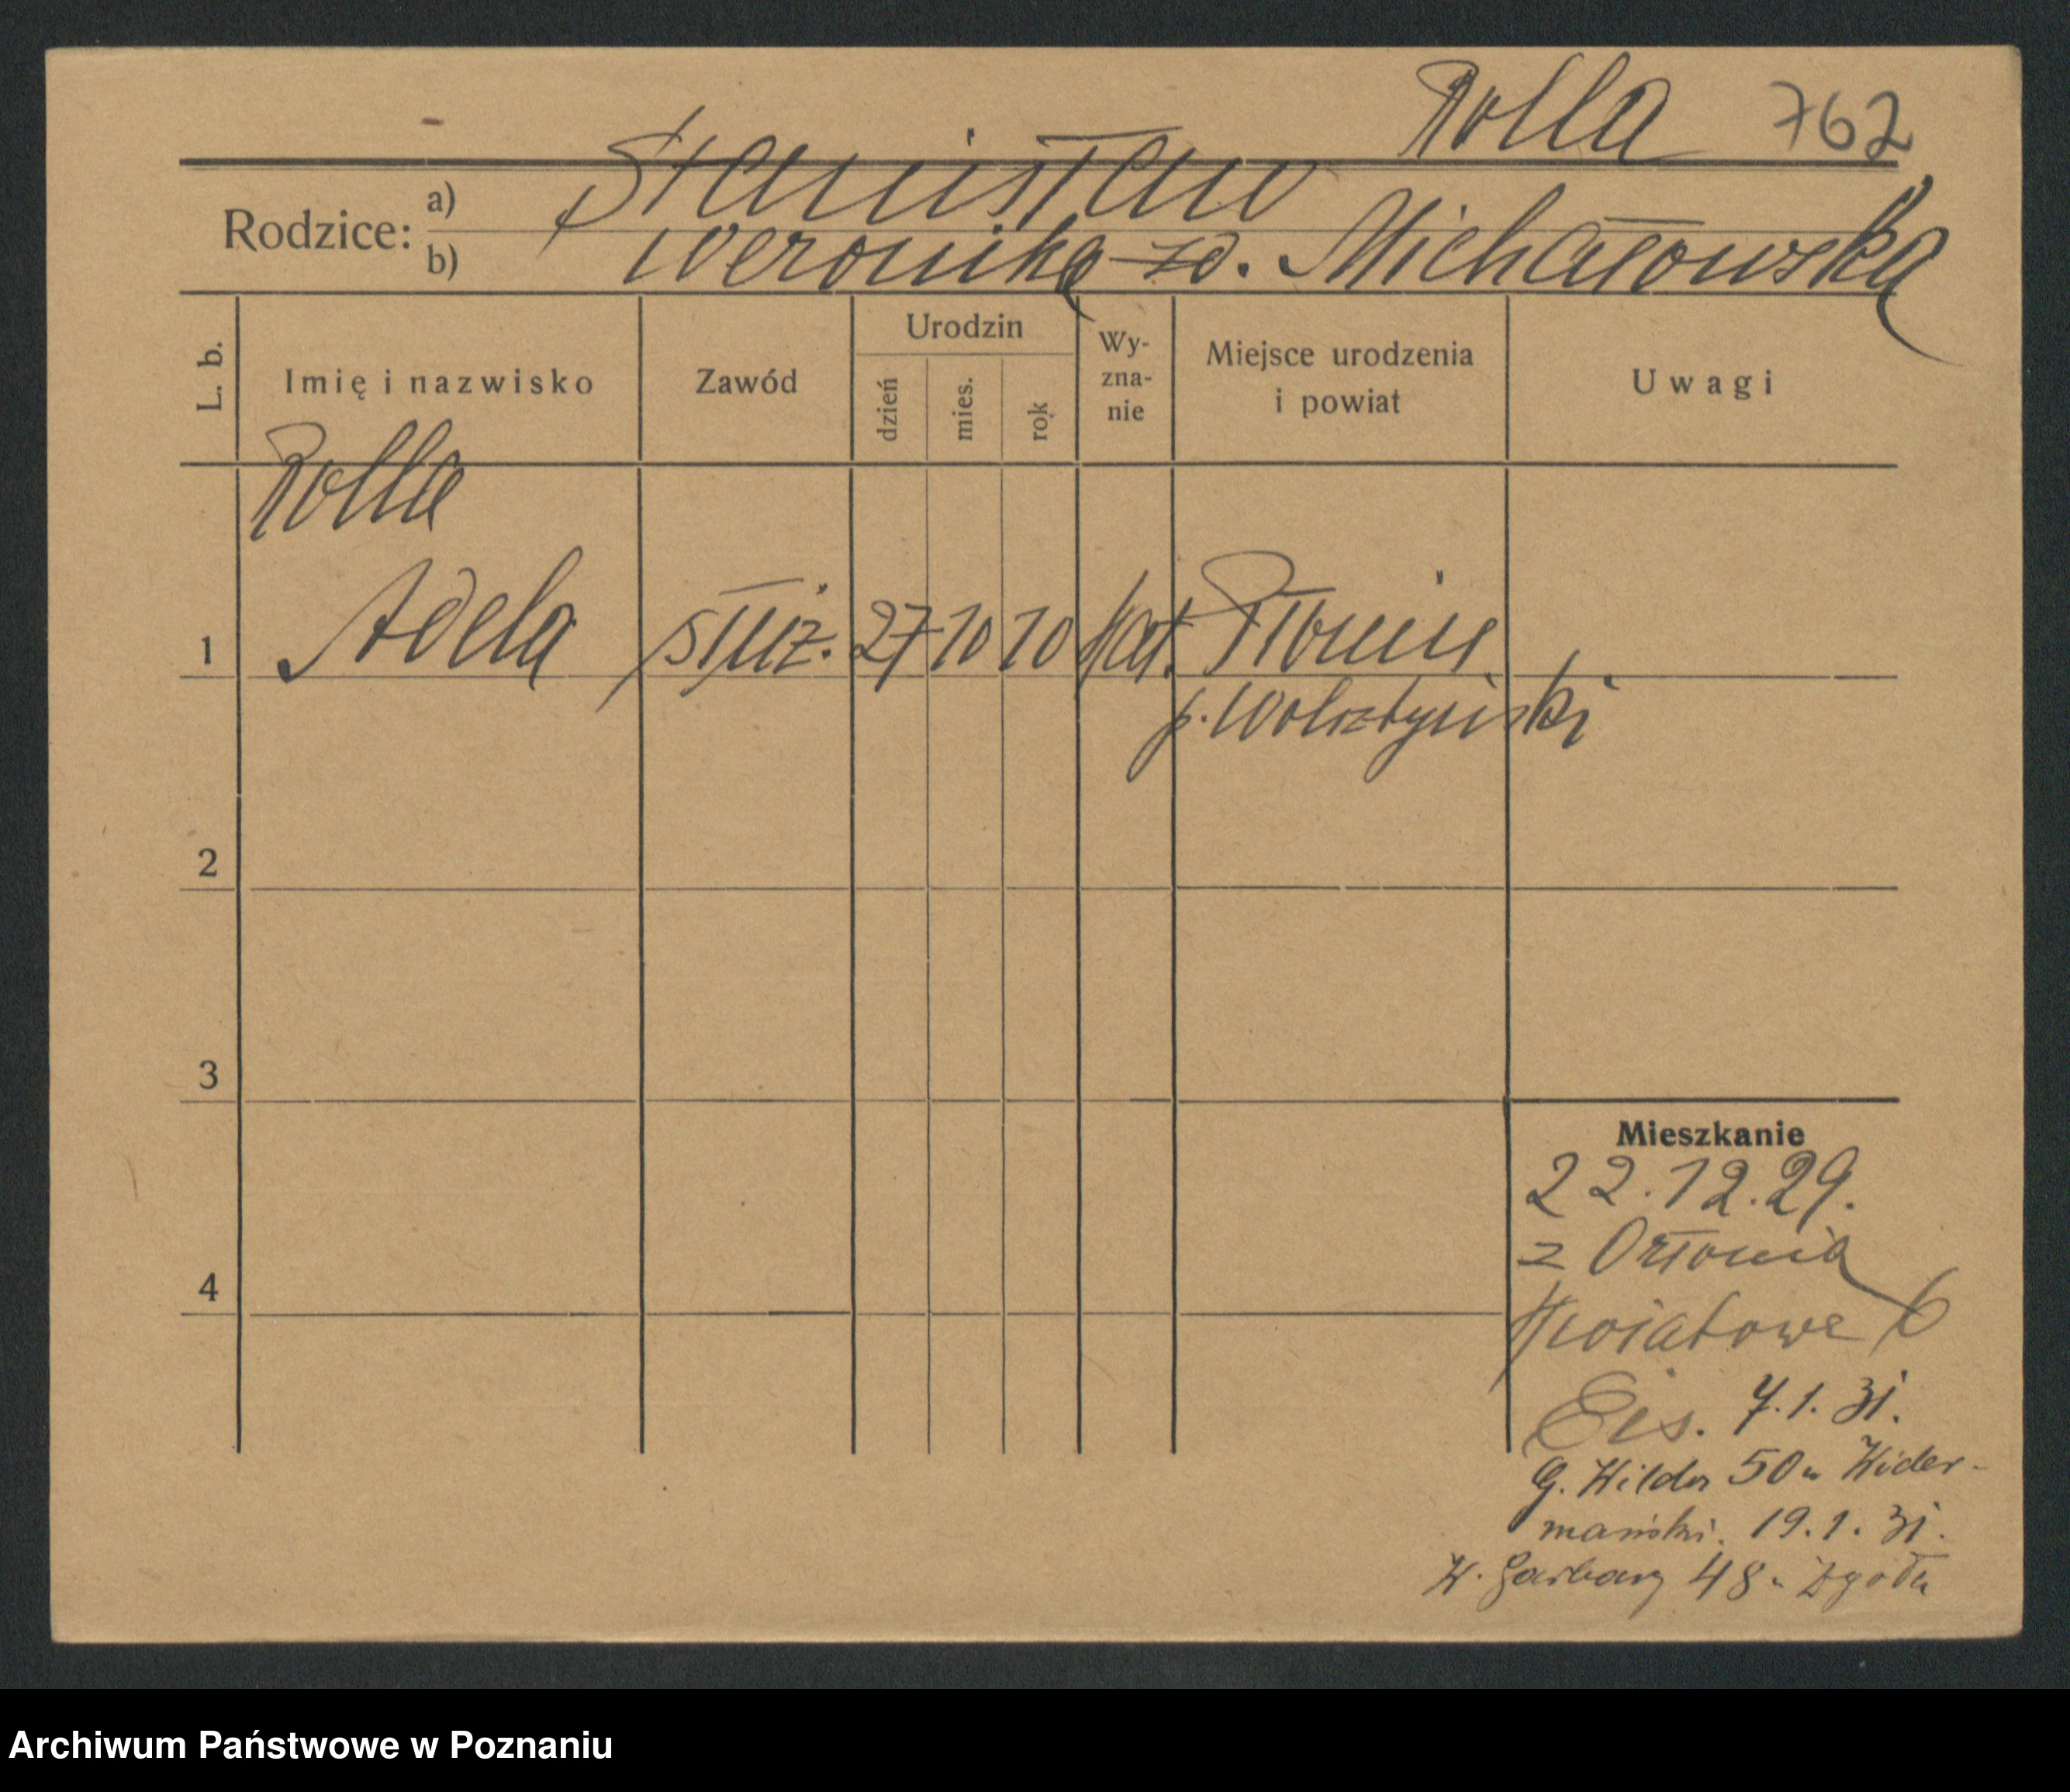 Rolla 762
Rodzice: a) Stanisław
b) Weronika zd. Michałowska
L. b. Imię i nazwisko Zawód Urodzin dzień mies. rok Wy-zna-nie Miejsce urodzenia i powiat Uwagi
Rolla
1 Adela służ. 27 10 10 kat.
p. Wolsztyński
2
3
Mieszkanie
22.12.29.
4 z
Kwiatowe 6
7.1.31.
G. Wilda 50 u Wider-
mański. 19.1.31.
W. Garbary 48 u
Archiwum Państwowe w Poznaniu